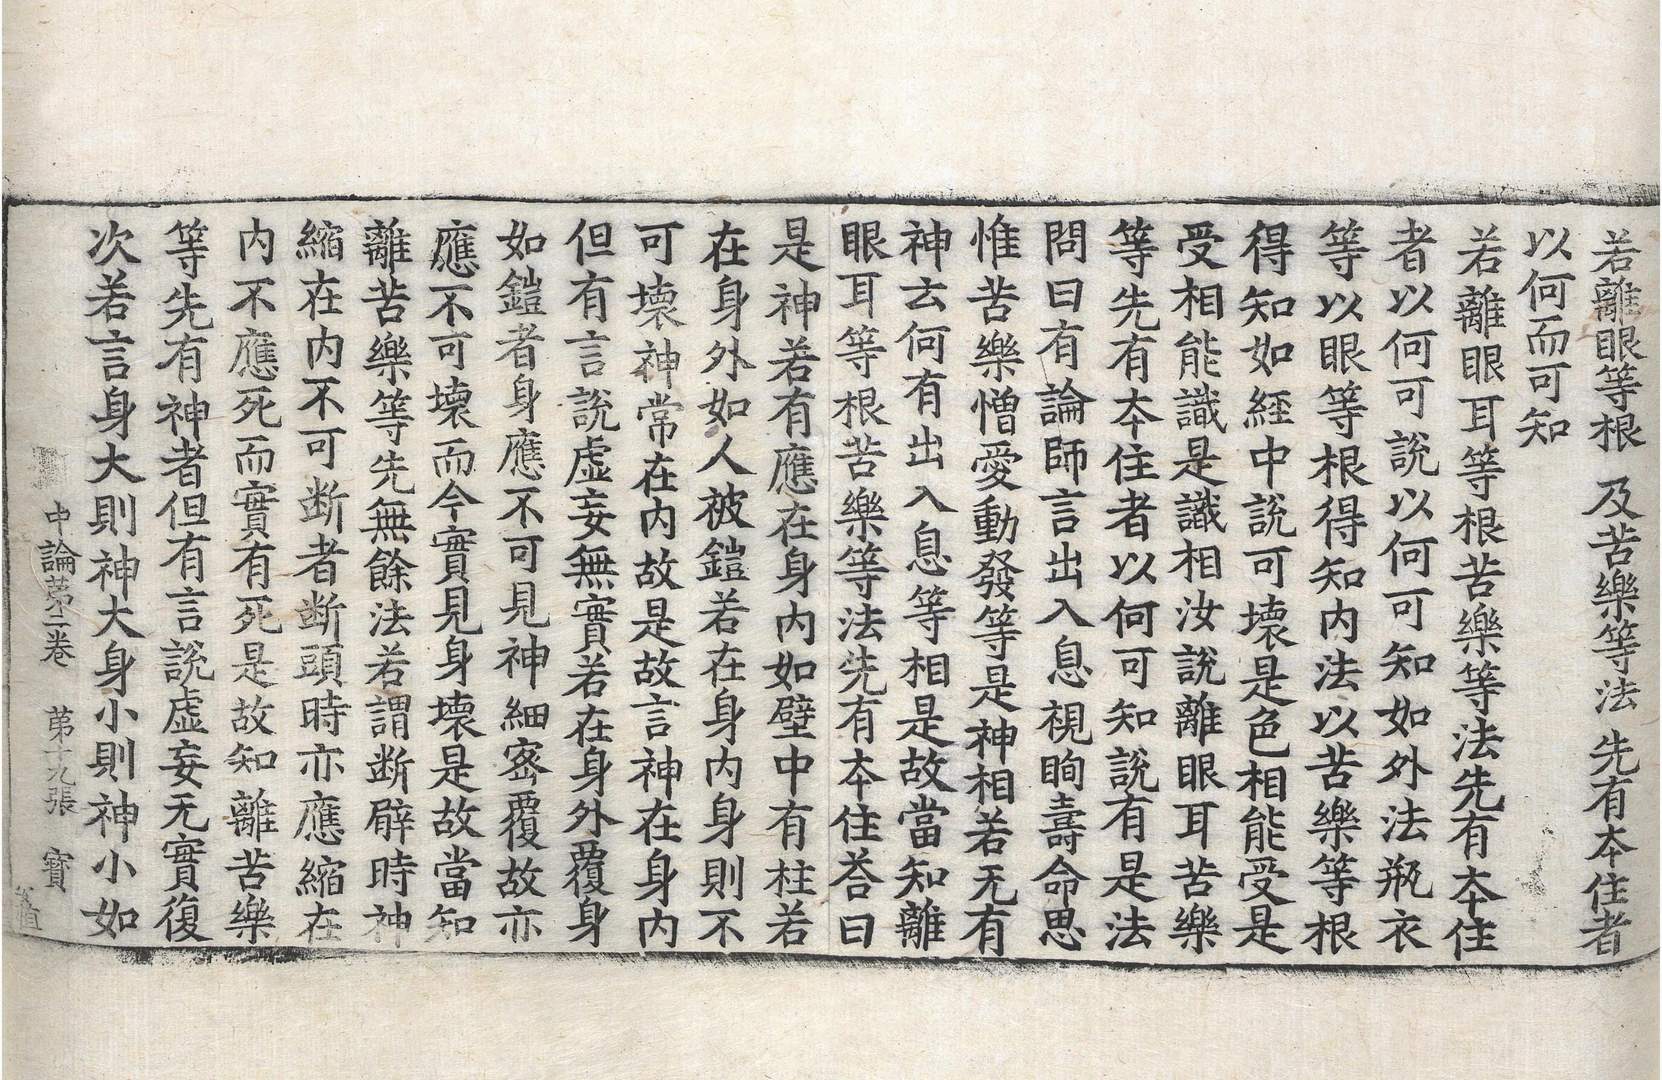 若離眼等根 及苦樂等法 先有本住者
以何而可知
若離眼耳等根苦樂等法先有本住
者以何可說以何可知如外法瓶衣
等以眼等根得知內法以苦樂等根
得知如經中說可壞是色相能受是
受相能識是識相汝說離眼耳苦樂
等先有本住者以何可知說有是法
問曰有論師言出入息視眴壽命思
惟苦樂憎愛動發等是神相若无有
神云何有出入息等相是故當知離
眼耳等根苦樂等法先有本住荅曰
是神若有應在身內如壁中有柱若
在身外如人被鎧若在身內身則不
可壞神常在內故是故言神在身內
但有言說虛妄無實若在身外覆身
如鎧者身應不可見神細密覆故亦
應不可壞而今實見身壞是故當知
離苦樂等先無餘法若謂断臂時神
縮在內不可断者断頭時亦應縮在
內不應死而實有死是故知離苦樂
等先有神者但有言說虛妄无實復
次若言身大則神大身小則神小如
中論苐二卷 苐十九張 寳